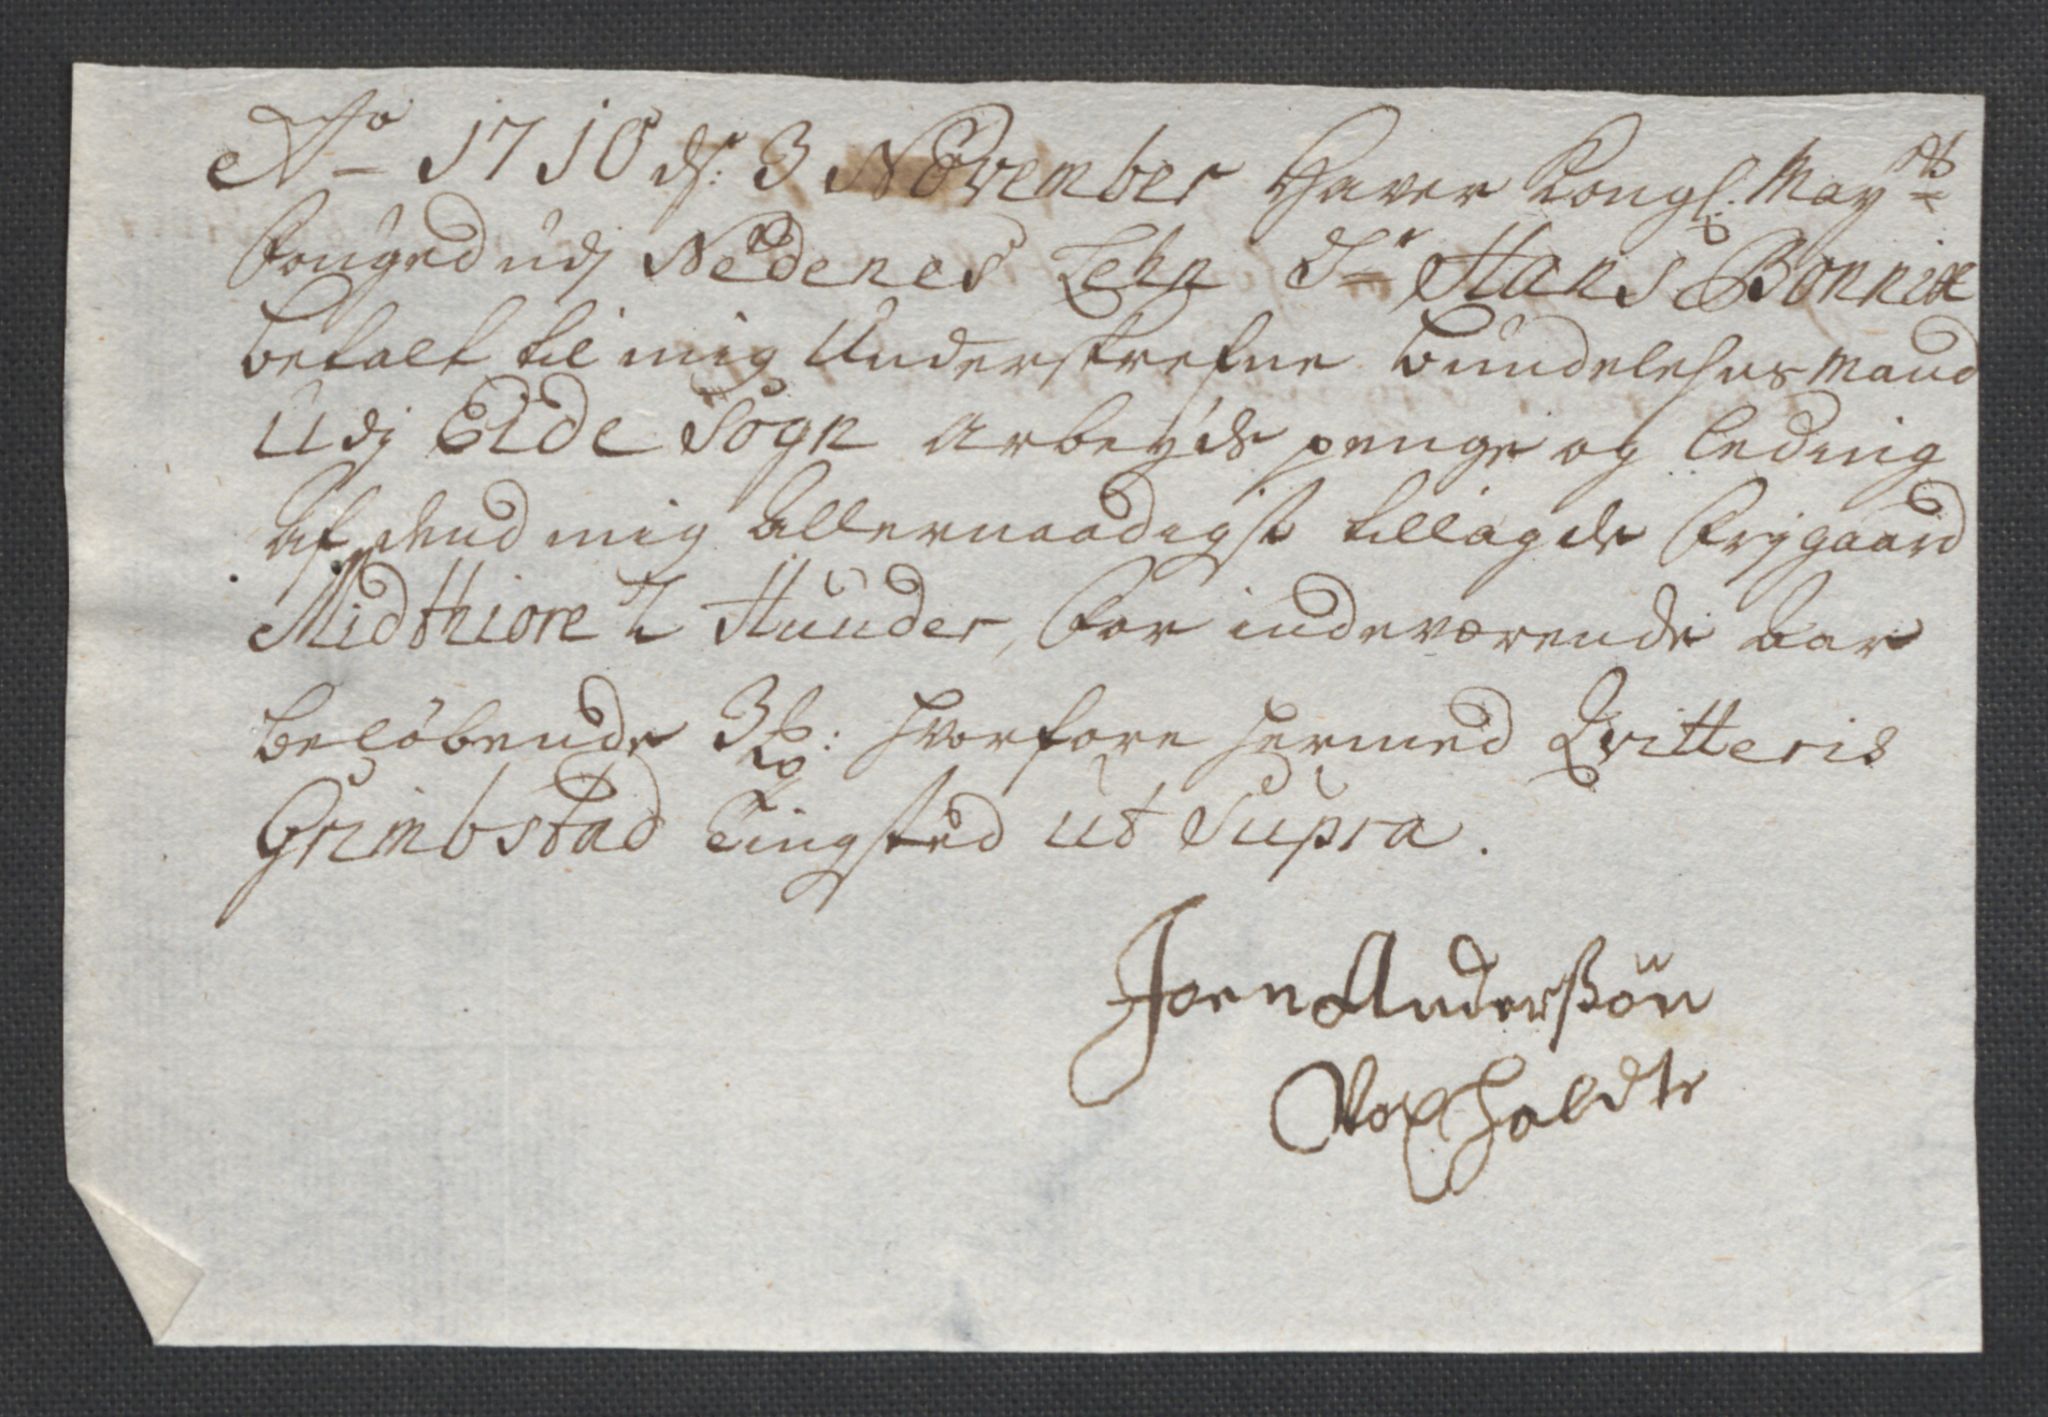 Ao 1710 ds: 3 November Haver Kongl. Mayts
fouged udj Nedenes Lehn Sr Hans Bonnix
betalt til mig Underskrefne bundelehns mand
Udj Eide Sogn arbeyds penge og leding
af dend mig allernaadigst tillagde frygaard
Midthiore 2 Huuder, for indeværende aar
beløbende 3 hvorfore hermed Qvitteris
Grimbstad Tingsted ut Supra.
Joen Anderßön
Voxholdt